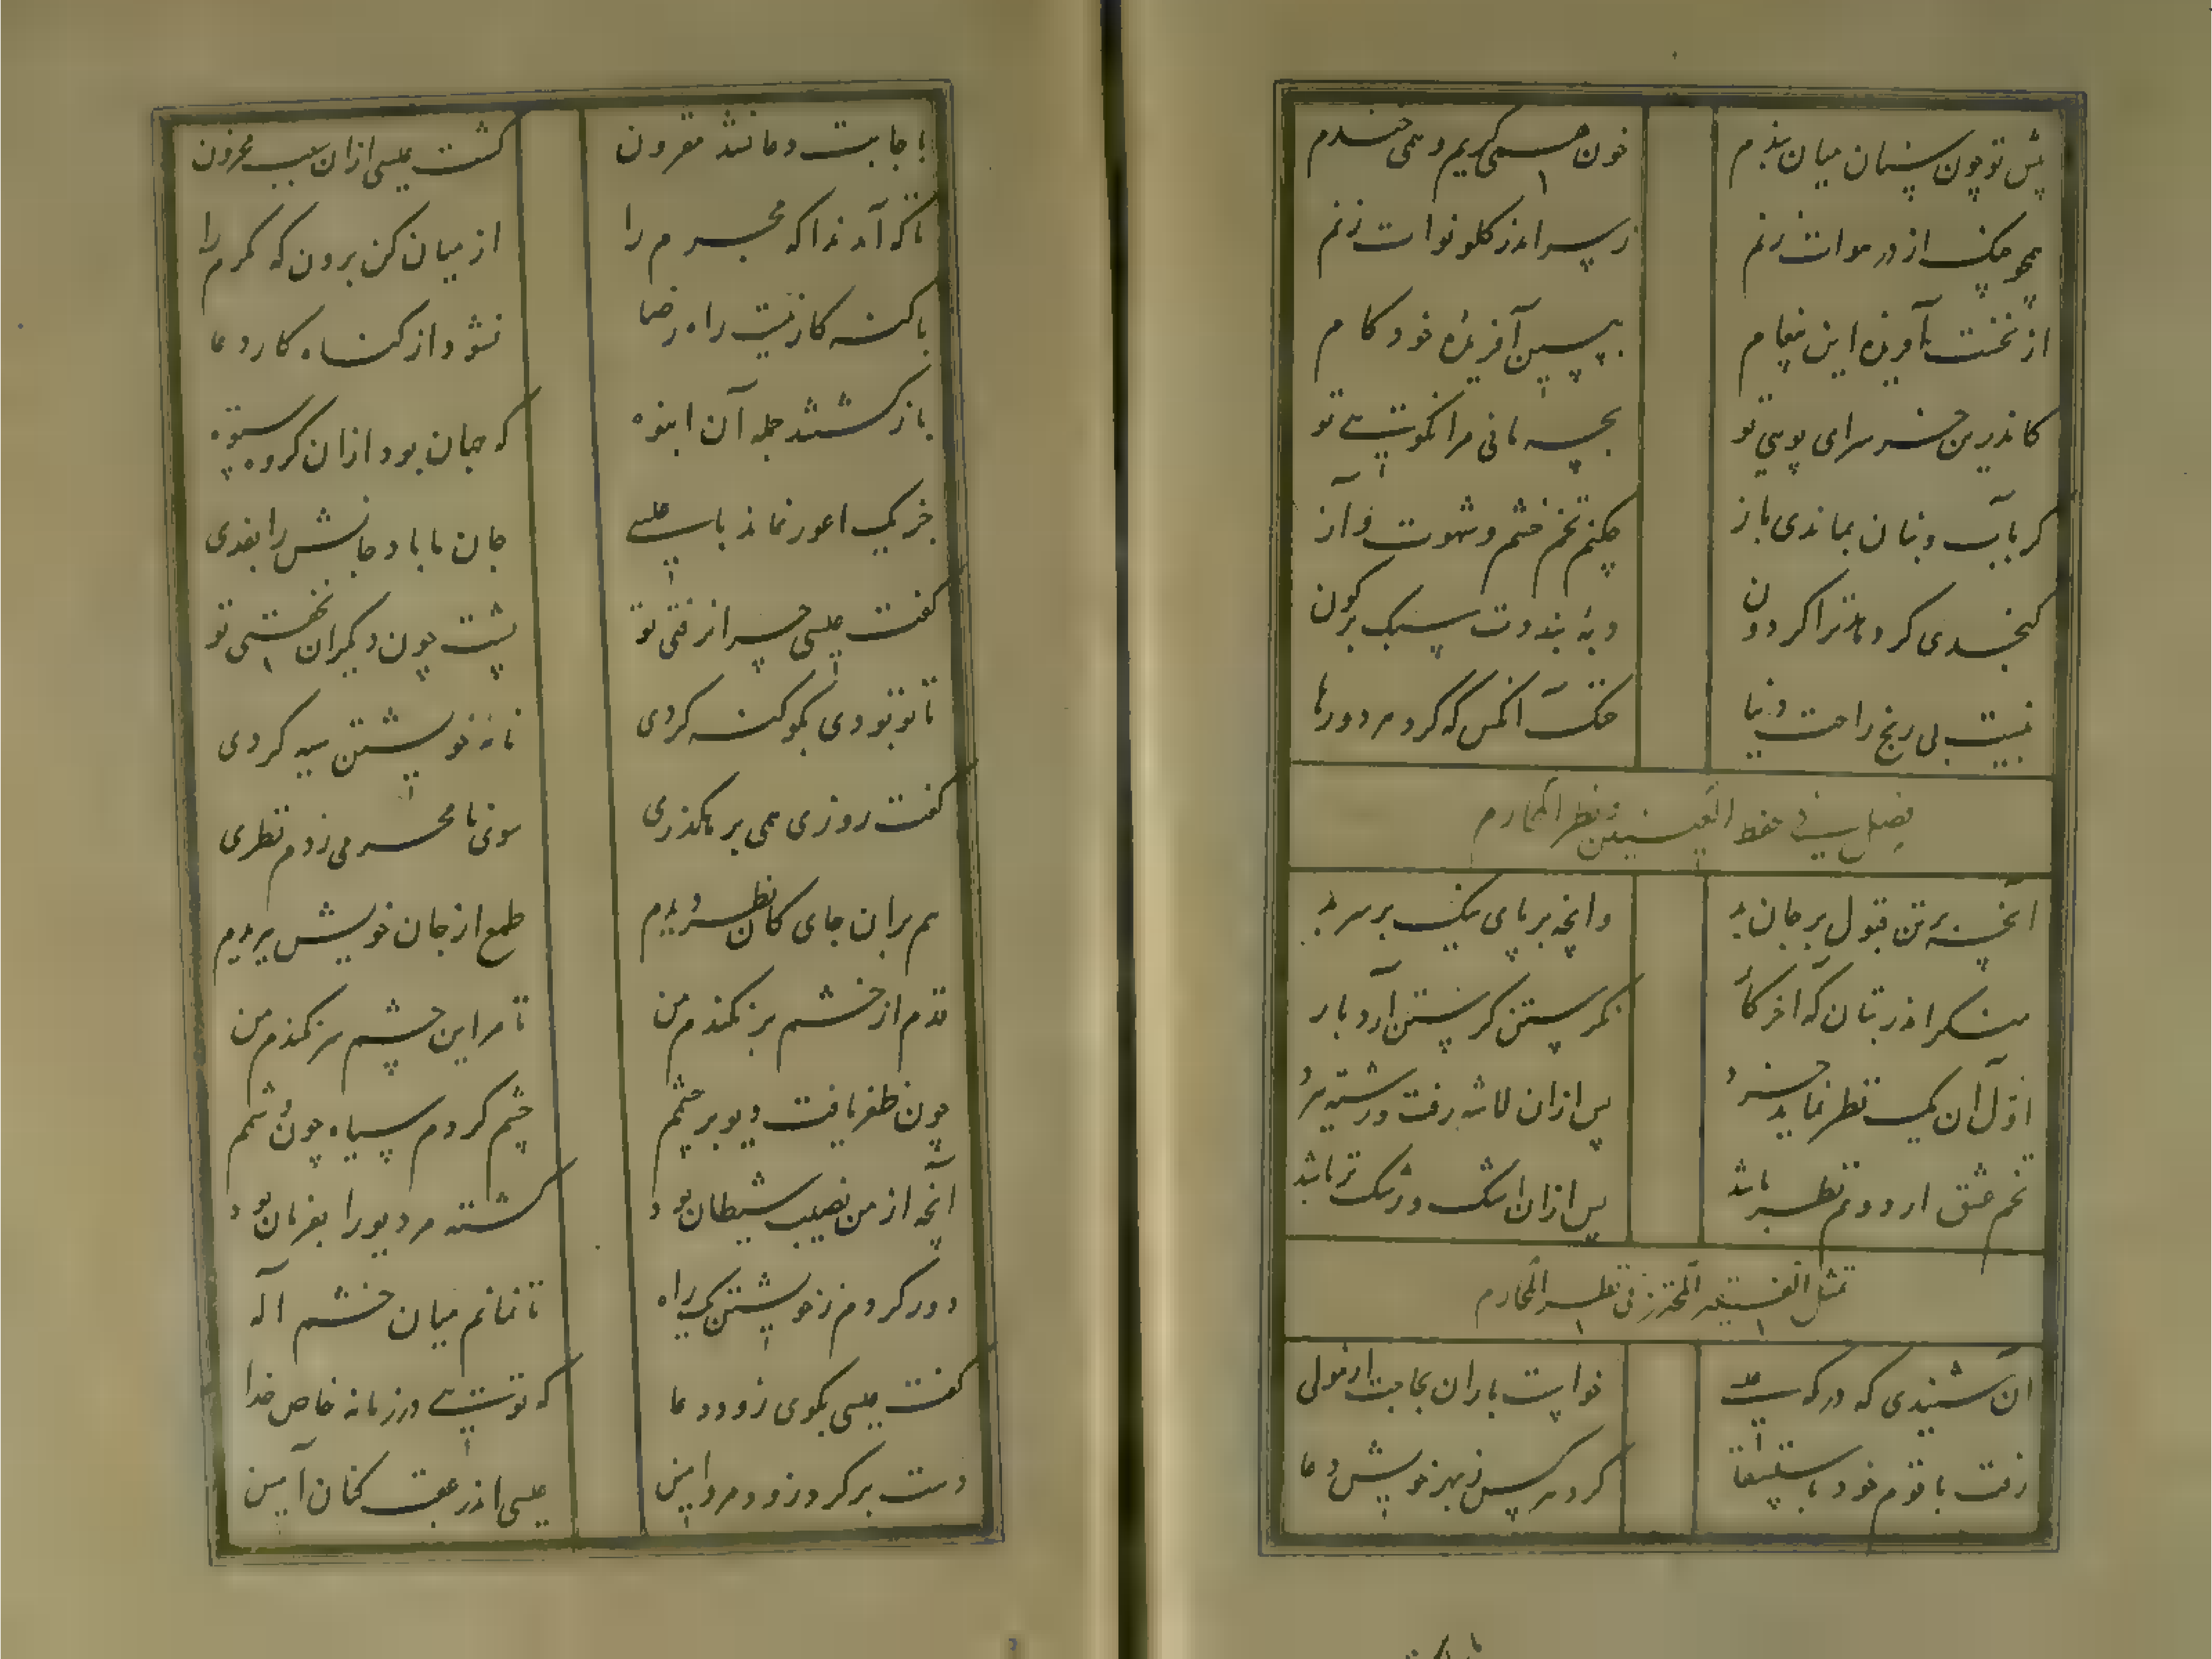 پیش تو چون سنان میان بندم خون همی گریم و همی خندم
همچو چنگ از درموات زنم زیر سر اندر گلو نوات زنم
از نخست آفریده این پیغام بپسین آفریده خود کام
کاندرین حشر سرای پویی تو بچه مانی مرا نگویی تو
گر بآب و بنان بمانده‌ی باز چکنم تخم خشم و شهوت و آز
کنجدی گرد ماند ترا گردون دبه بندوت سبک بر کون
نیست بی رنج راحت دنیا خنک آنکس که کرد مردو رها
فصل فی حفظ العین من نظر المحارم
آنچه بر تن قبول بر جان بد وانچه بر پای نیک بر سر بد
منگر اندر بتان که آخر کار نگرستن گرستن آرد بار
اول آن یک نظر نماید خرد پس ازان لاشه رفت و رشته ببرد
تخم عشق ار دوم نظر باشد پس ازان اشک و رشک تر باشد
تمثل الفقیه المحترز فی نظر المحارم
آن شنیدی که در گه عیسی خواست باران بحاجت از مولی
رفت با قوم خود باستسقا کرد هر کس ز بهر خویش دعا
باجابت دعا نشد مقرون گشت عیسی ازان سبب محزون
ناگه آمد ندا که مجرم را از میان کن برون که مکرم را
با گنه کار نیست راه رضا نشود از گناه کار دعا
بازگشتند جمله آن انبوه که جهان بود ازان گروه ستوه
جز یک اعور نماند با عیسی جان بابا و جانش را بفدی
گفت عیسی چرا نرفتی تو پشت چون دیگران نخفتی تو
تا تو بودی بگو گنه کردی نامه خویشتن سیه کردی
گفت روزی همی بر هگذری سوی نامحرمی زدم نظری
هم بران جای کان نظر دیدم طمع از جان خویش ببریدم
قدم از خشم بر نکندم من تا مر این چشم سر نکندم من
چون ظفر یافت دیو بر چشمم چشم کردم سیاه چون خشمم
آنچه از من نصیب شیطان بود گشته مر دیو را بفرمان بود
دور کردم ز خویشتن یک راه تا نمانم میان خشم اله
گفت عیسی بگوی زود دعا که تویی در زمانه خاص خدا
دست بر کرد زود مرد امین عیسی اندر عقب کنان آمین